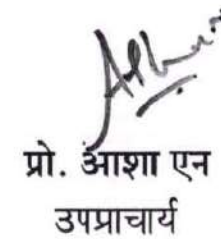 प्रो. आशा एन
उपप्राचार्य